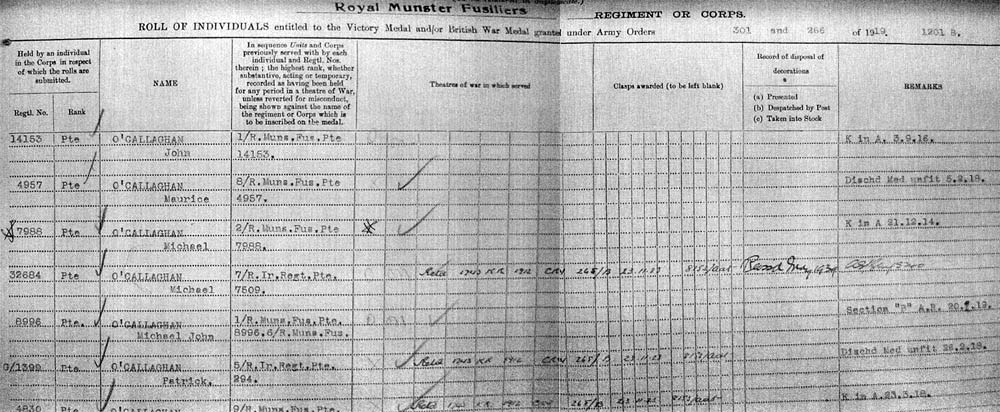 Royal Munster Fusiliers
REGIMENT OR CORPS.
ROLL OF INDIVIDUALS entitled to the Victory Medal and/or British War Medal granted under Army Orders 301 and 266 of 1919. 1201 B.
Held by an individual
in the Corps in respect
of which the rolls are
submitted.
Regtl. No.
Rank
NAME
In sequence Units and Corps
previously served with by each
individual and Regtl. Nos.
therein; the highest rank, whether
substantive, acting or temporary,
recorded as having been held
for any period in a theatre of War,
unless reverted for misconduct,
being shown against the name of
the regiment or Corps which is
to be inscribed on the medal.
Theatres of war in which served
Clasps awarded (to be left blank)
Record of disposal of
decorations
(a) Presented
(b) Despatched by Post
(c) Taken into Stock
REMARKS
14153 Pte O'CALLAGHAN 1/R.Muns.Fus.Pte K in A. 3.9.16.
John 14153.
4957 Pte O'CALLAGHAN 8/R.Muns.Fus.Pte Dischd Med unfit 5.2.18.
Maurice 4957.
7988 Pte O'CALLAGHAN 2/R.Muns.Fus.Pte K in A 21.12.14.
Michael 7988.
32684 Pte O'CALLAGHAN 7/R.Ir.Regt.Pte. 1743 KR 1912 265/B 23.11.23
Michael 7509.
8996 Pte. O'CALLAGHAN 1/R.Muns.Fus.Pte. Section "B" A.R.
Michael John 8996.6/R.Muns.Fus.
/1399 Pte O'CALLAGHAN 5/R.Ir.Regt.Pte. 1743 KR 1912 265/B 23.11.23 Dischd Med unfit 26.2.18.
Patrick. 294.
4830 Pte O'CALLAGHAN 9/R.Muns.Fus.Pte K in A.23.3.18.